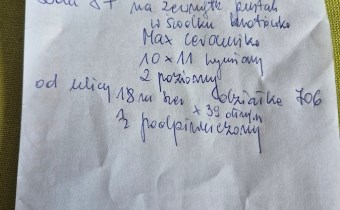 87 na zewnątrz pustak
w środku
Max ceramika
10 x 11 wymiary
2 poziomy
od ulicy 18 m szer działka 706
x 39
podpiwniczony